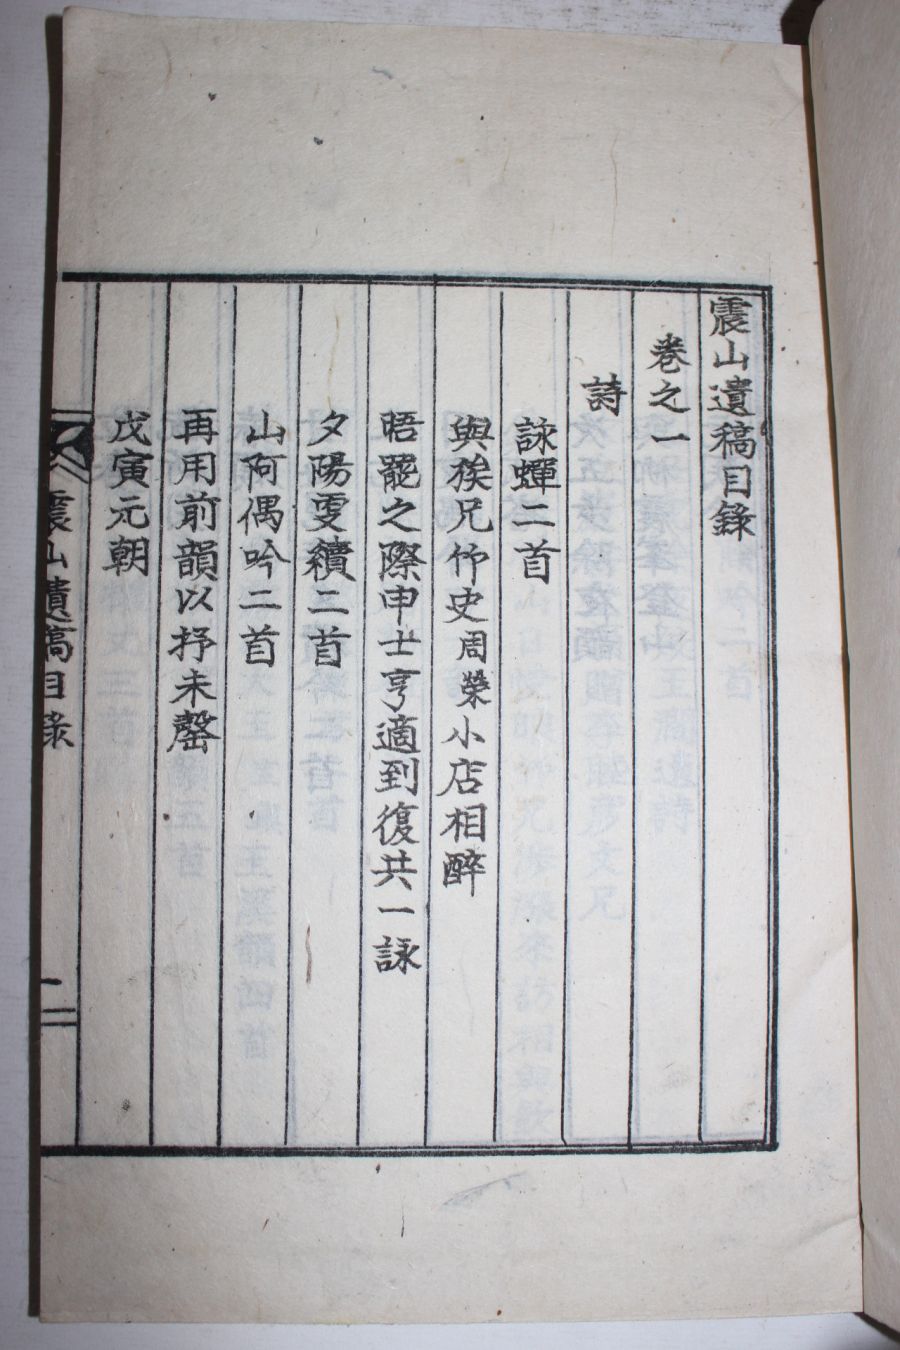 震山遺稿目錄
卷之一
詩
詠蟬二首
與族兄伃史周榮小店相醉
晤罷之際申士亨適到復共一詠
夕陽雯續二首
山阿偶吟二首
再用前韻以抒未罄
戊寅元朝
震山遺稿目錄 一